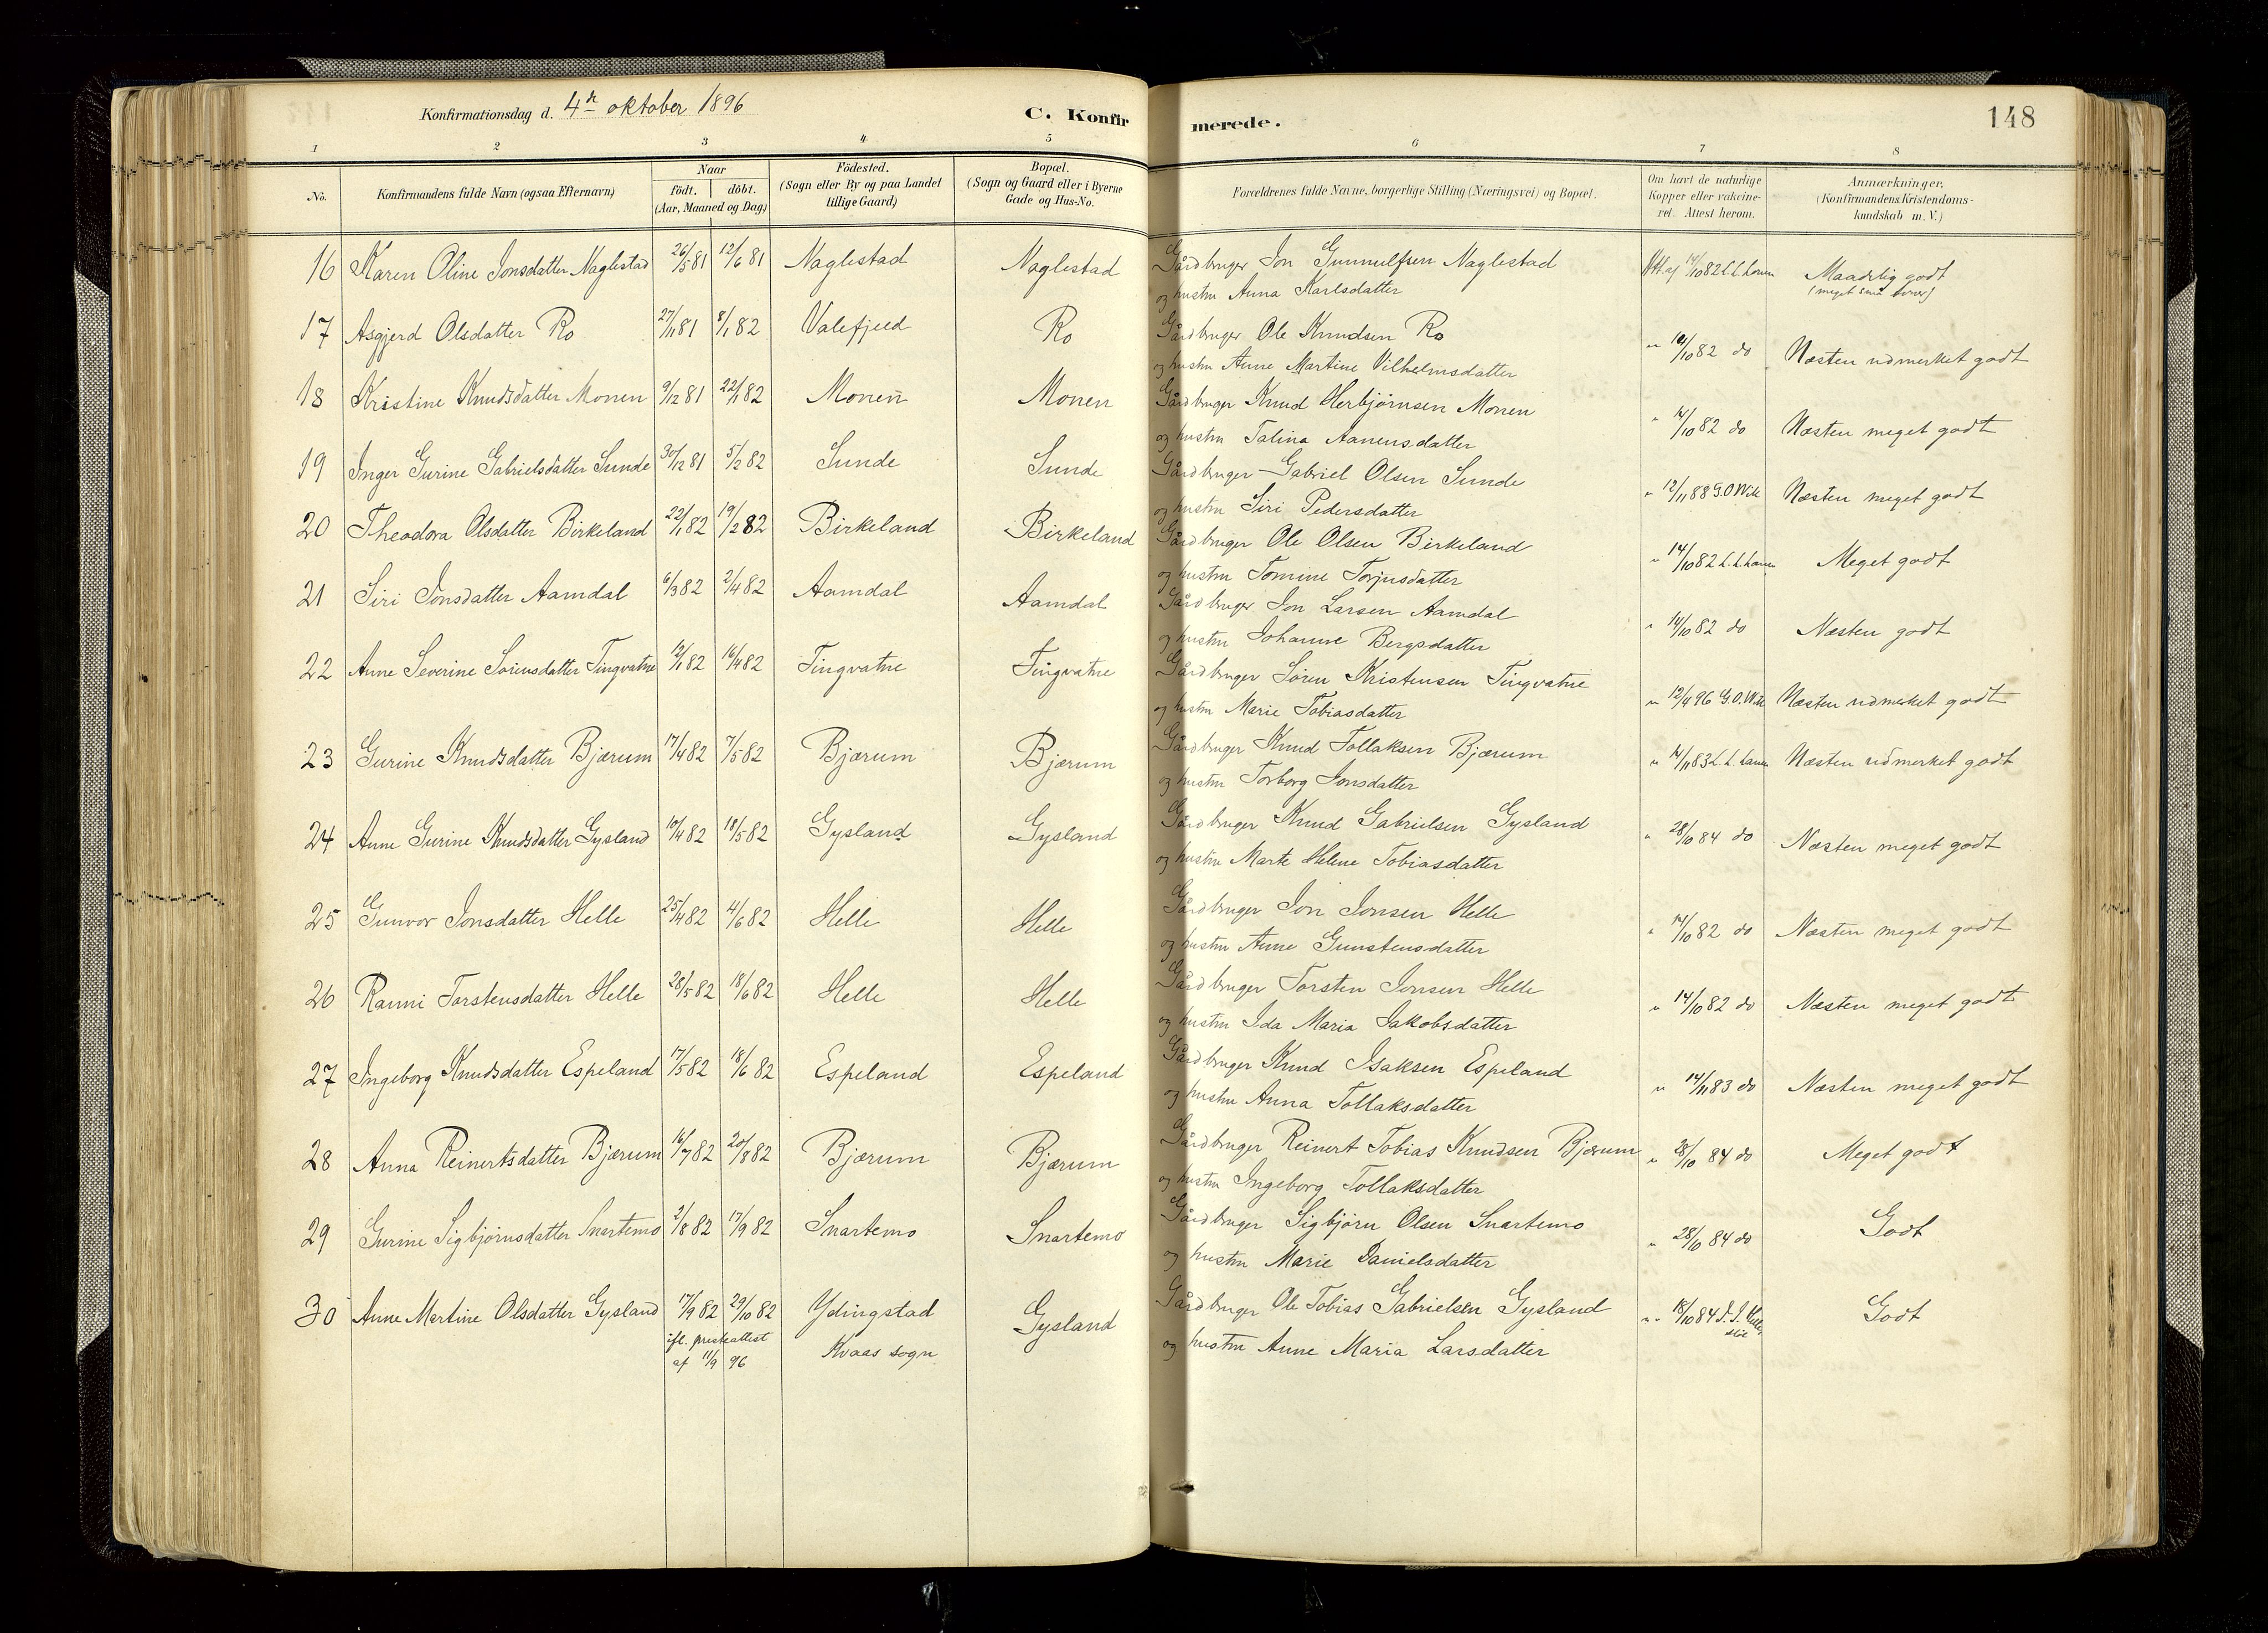 Konfirmationsdag d. 4de oktober 1896
C. Konfirmerede.
148
1 2 3 4 5 6 7 8
No. Konfirmandens fulde Navn (ogsaa Efternavn) Naar født. døbt. (Aar, Maaned og Dag) Födested. (Sogn eller By og paa Landet tillige Gaard) Bopæl. (Sogn og Gaard eller i Byerne Gade og Hus-No. Forældrenes fulde Navne, borgerlige Stilling (Næringsvei) og Bopæl. Om havt de naturlige Kopper eller vakcineret. Attest herom. Anmærkninger, (Konfirmandens Kristendomskundskab m. V.)
16 Karen Oline Jonsdatter Naglestad 26/5 81 12/6 81 Naglestad Naglestad Gårdbruger Jon Gunnulfsen Naglestad Att. af 14/10 82 Maadelig godt
og hustru Anna Karlsdatter (meget små evner)
17 Asgjerd Olsdatter Ro 27/11 81 8/1 82 Valefjeld Ro Gårdbruger Ole Knudsen Ro " 14/10 82 do Næsten udmerket godt
og hustru Anne Martine Vilhelmsdatter
18 Kristine Knudsdatter Monen 9/12 81 22/1 82 Monen Monen Gårdbruger Knud Herbjørnsen Monen " 14/10 82 do Næsten meget godt
og hustru Talina Aanensdatter
19 Inger Gurine Gabrielsdatter Sunde 30/12 81 5/2 82 Sunde Sunde Gårdbruger Gabriel Olsen Sunde " 12/11 88 G.O.Wik Næsten meget godt
og hustru Siri Pedersdatter
20 Theodora Olsdatter Birkeland 22/1 82 19/2 82 Birkeland Birkeland Gårdbruger Ole Olsen Birkeland " 14/10 82 Meget godt
og hustru Tomine Torjusdatter
21 Siri Jonsdatter Aamdal 6/3 82 2/4 82 Aamdal Aamdal Gårdbruger Jon Larsen Aamdal " 14/10 82 do Næsten godt
og hustru Johanne Bergsdatter
22 Anne Severine Sørensdatter Tingvatne 12/1 82 16/4 82 Tingvatne Tingvatne Gårdbruger Søren Kristensen Tingvatne " 12/4 96 G.O.Wik Næsten udmerket godt
og hustru Marie Tobiasdatter
23 Gurine Knudsdatter Bjærum 17/4 82 7/5 82 Bjærum Bjærum Gårdbruger Knud Tollaksen Bjærum " 14/11 83 Næsten udmerket godt
og hustru Torborg Jonsdatter
24 Anne Gurine Knudsdatter Gysland 10/4 82 18/5 82 Gysland Gysland Gårdbruger Knud Gabrielsen Gysland " 28/10 84 do Næsten meget godt
og hustru Marte Helene Tobiasdatter
25 Gunvor Jonsdatter Helle 25/4 82 4/6 82 Helle Helle Gårdbruger Jon Jonsen Helle " 14/10 82 do Næsten meget godt
og hustru Anne Gunstensdatter
26 Ranni Torstensdatter Helle 28/5 82 18/6 82 Helle Helle Gårdbruger Torsten Jonsen Helle " 14/10 82 do Næsten meget godt
og hustru Ida Maria Jakobsdatter
27 Ingeborg Knudsdatter Espeland 17/5 82 18/6 82 Espeland Espeland Gårdbruger Knud Isaksen Espeland " 14/11 83 do Næsten meget godt
og hustru Anna Tollaksdatter
28 Anna Reinertsdatter Bjærum 16/7 82 20/8 82 Bjærum Bjærum Gårdbruger Reinert Tobias Knudsen Bjærum " 28/10 84 do Meget godt
og hustru Ingeborg Tollaksdatter
29 Gurine Sigbjørnsdatter Snartemo 2/8 82 17/9 82 Snartemo Snartemo Gårdbruger Sigbjørn Olsen Snartemo " 28/10 84 do Godt
og hustru Marie Danielsdatter
30 Anne Martine Olsdatter Gysland 17/9 82 29/10 82 Ydingstad Gysland Gårdbruger Ole Tobias Gabrielsen Gysland " 18/10 84 Godt
ifl. presteattest Kvaas sogn og hustru Anne Maria Larsdatter
af 11/9 96